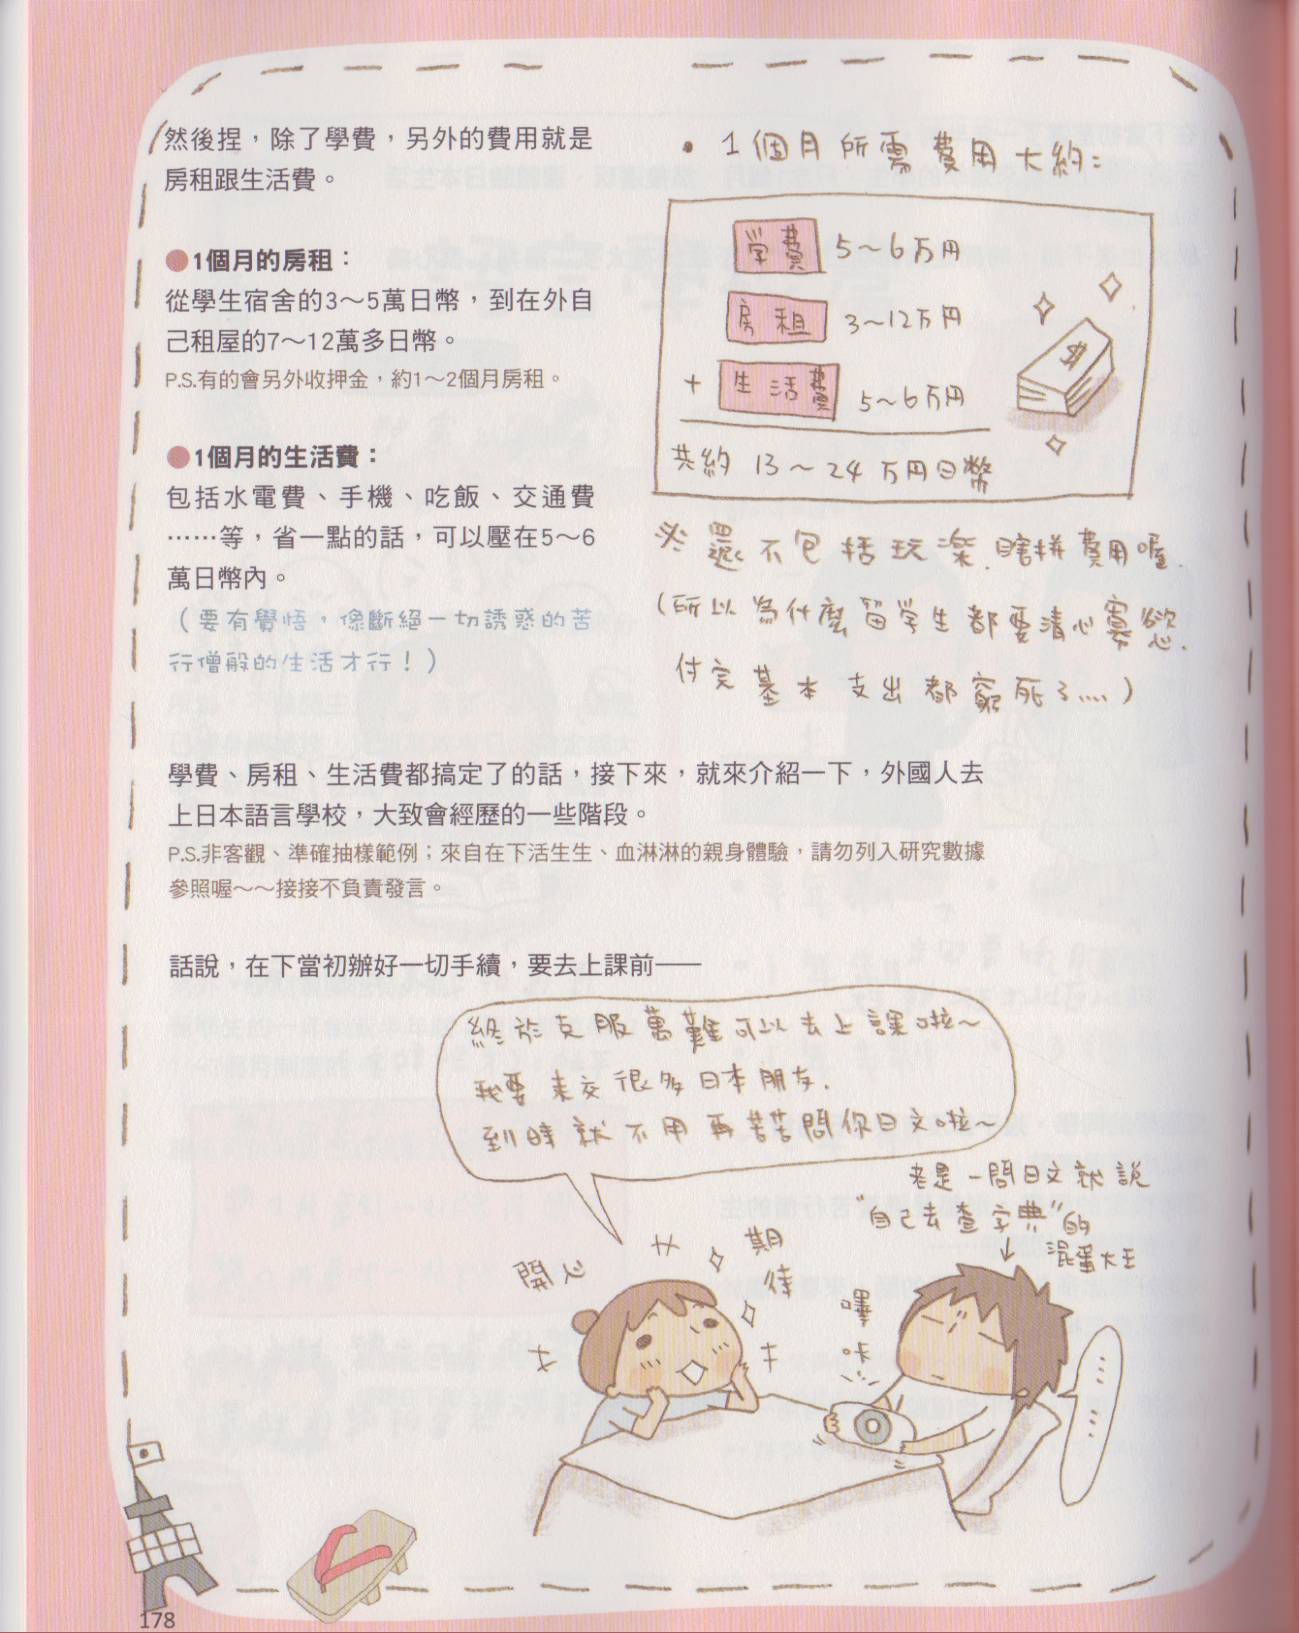 然後捏，除了學費，另外的費用就是
房租跟生活費。
●1個月的房租：
從學生宿舍的3～5萬日幣，到在外自
己租屋的7～12萬多日幣。
P.S.有的會另外收押金，約1～2個月房租。
●1個月的生活費：
包括水電費、手機、吃飯、交通費
……等，省一點的話，可以壓在5～6
萬日幣內。
（要有覺悟，像斷絕一切誘惑的苦
行僧般的生活才行！）
• 1個月所需費用大約：
学費 5～6万円
房租 3～12万円
+ 生活費 5～6万円
共約 13～24万円日幣
※還不包括玩樂、瞎拼費用喔.
（所以為什麼留学生都要清心寡慾.
付完基本支出都窮死了....）
學費、房租、生活費都搞定了的話，接下來，就來介紹一下，外國人去
上日本語言學校，大致會經歷的一些階段。
P.S.非客觀、準確抽樣範例；來自在下活生生、血淋淋的親身體驗，請勿列入研究數據
參照喔～～接接不負責發言。
話說，在下當初辦好一切手續，要去上課前——
終於克服萬難可以去上課啦～
我要來交很多日本朋友.
到時就不用再苦苦問你日文啦～
老是一問日文就說
“自己去查字典”的
混蛋大王
開心
期待
嗶咔
......
178